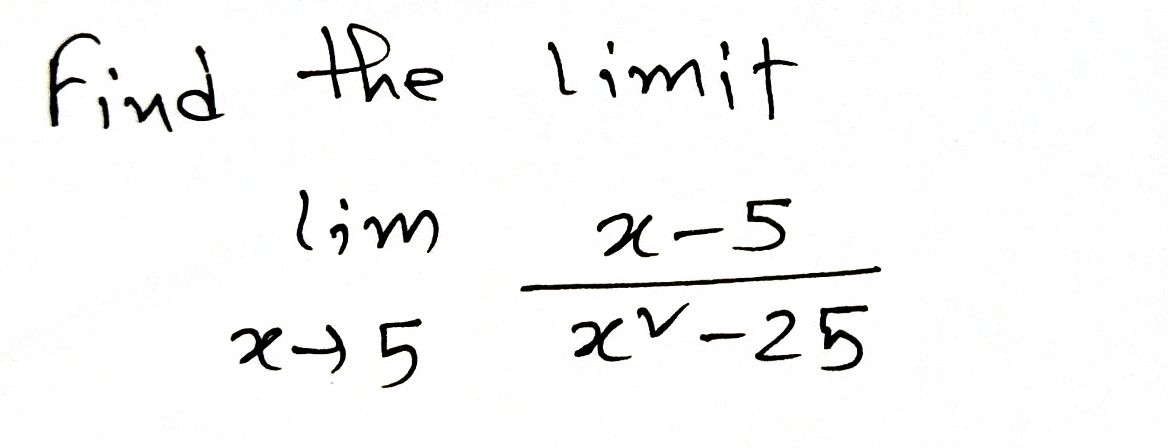 Find the limit
lim x-5
x→5 x²-25